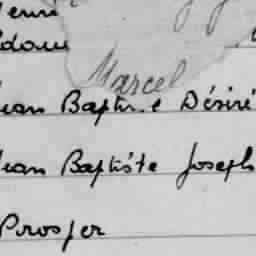 Marcel
Jean Baptiste Désiré
Jean Baptiste Joseph
Prosper